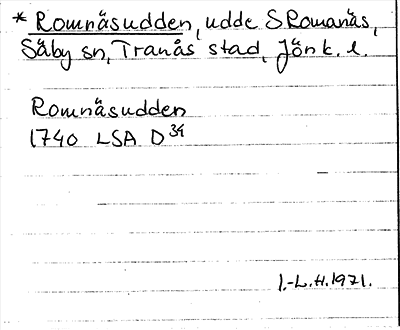 * Romnäsudden, udde S Romanäs,
Säby sn, Tranås stad, Jönk. l.
Romnäsudden
1740 LSA D 34
I.-L.H. 1971.